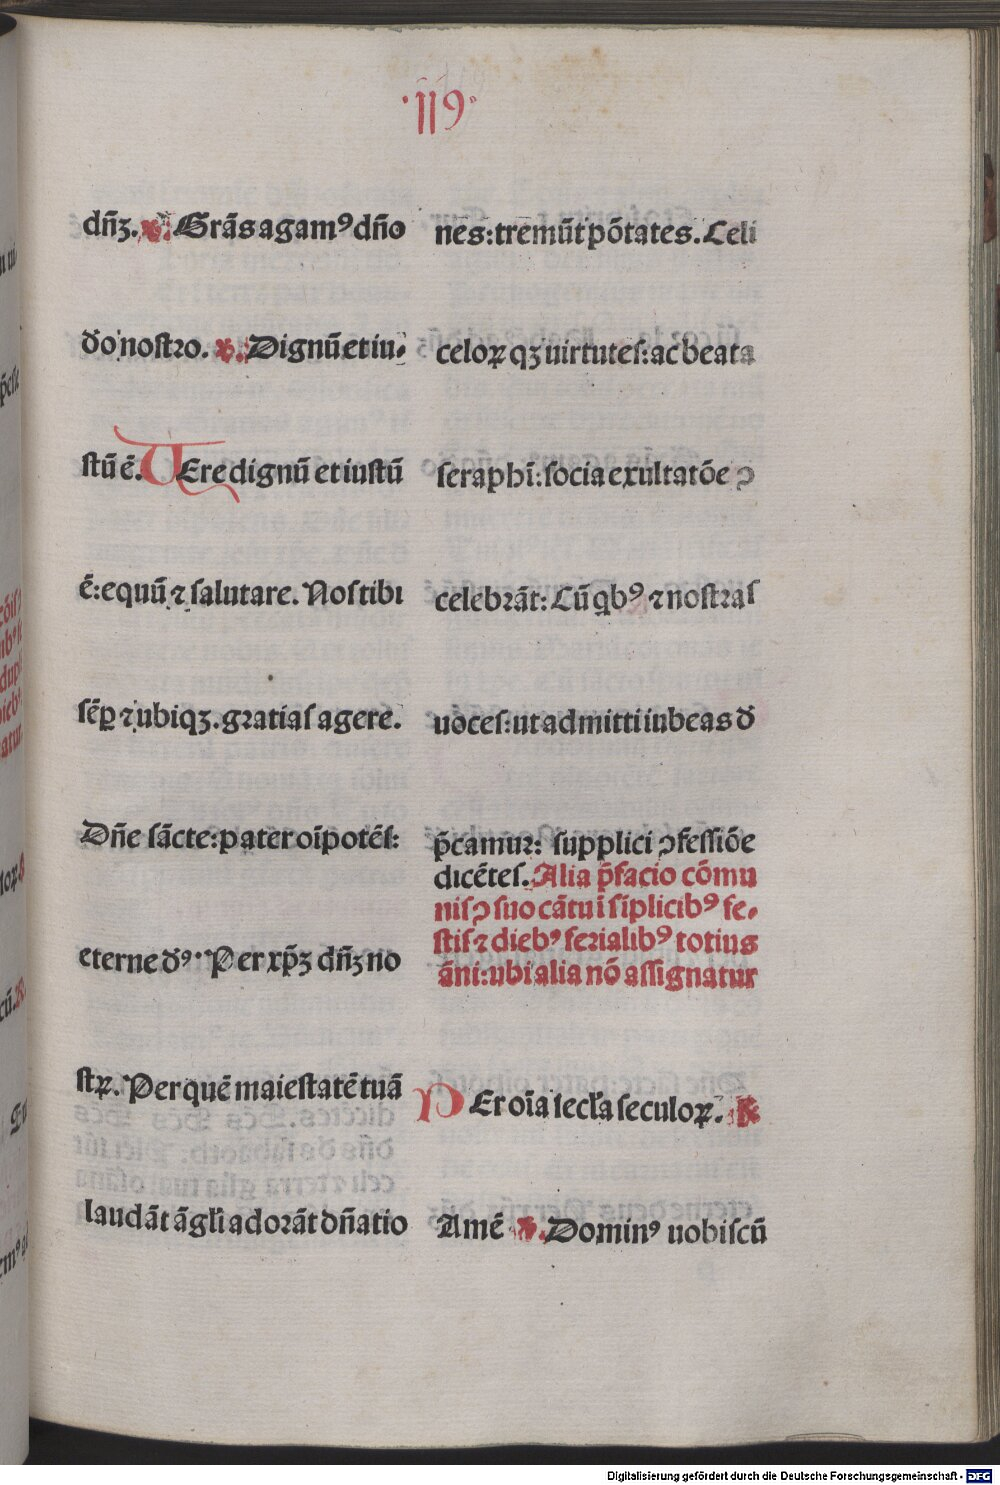 ·119·
dn̄ʒ. ꝟ. Grãs agamꝰ dn̄o
do nostro. ꝶ. Dignũ et iu-
stũ ẽ. VEre dignũ et iustũ
ẽ: equũ ⁊ salutare. Nos tibi
sẽꝑ ⁊ ubiqʒ. gratias agere.
Dn̄e sãcte: pater oĩpotẽs:
eterne dꝰ· Per xp̄ʒ dn̄ʒ no
stꝝ. Per quẽ maiestatẽ tuã
laudãt ãgl̃i adorãt dn̄atio
nes: tremũt põtates. Celi
celoꝝ qʒ uirtutes: ac beata
seraphĩ: socia exultatõe ꝯ
celebrãt: Cũ qͥbꝰ ⁊ nostras
uoces: ut admitti iubeas đ
p̄camur: supplici ꝯfessiõe
dicẽtes. Alia p̄facio cõmu
nis ꝯ suo cãtu ĩ sĩplicibꝰ fe-
stis ⁊ diebꝰ ferialibꝰ totius
ãni: ubi alia nõ assignatur
PEr oĩa secl̃a seculoꝝ. ꝶ
Amẽ ꝟ. Dominꝰ uobiscũ
Digitalisierung gefördert durch die Deutsche Forschungsgemeinschaft - DFG